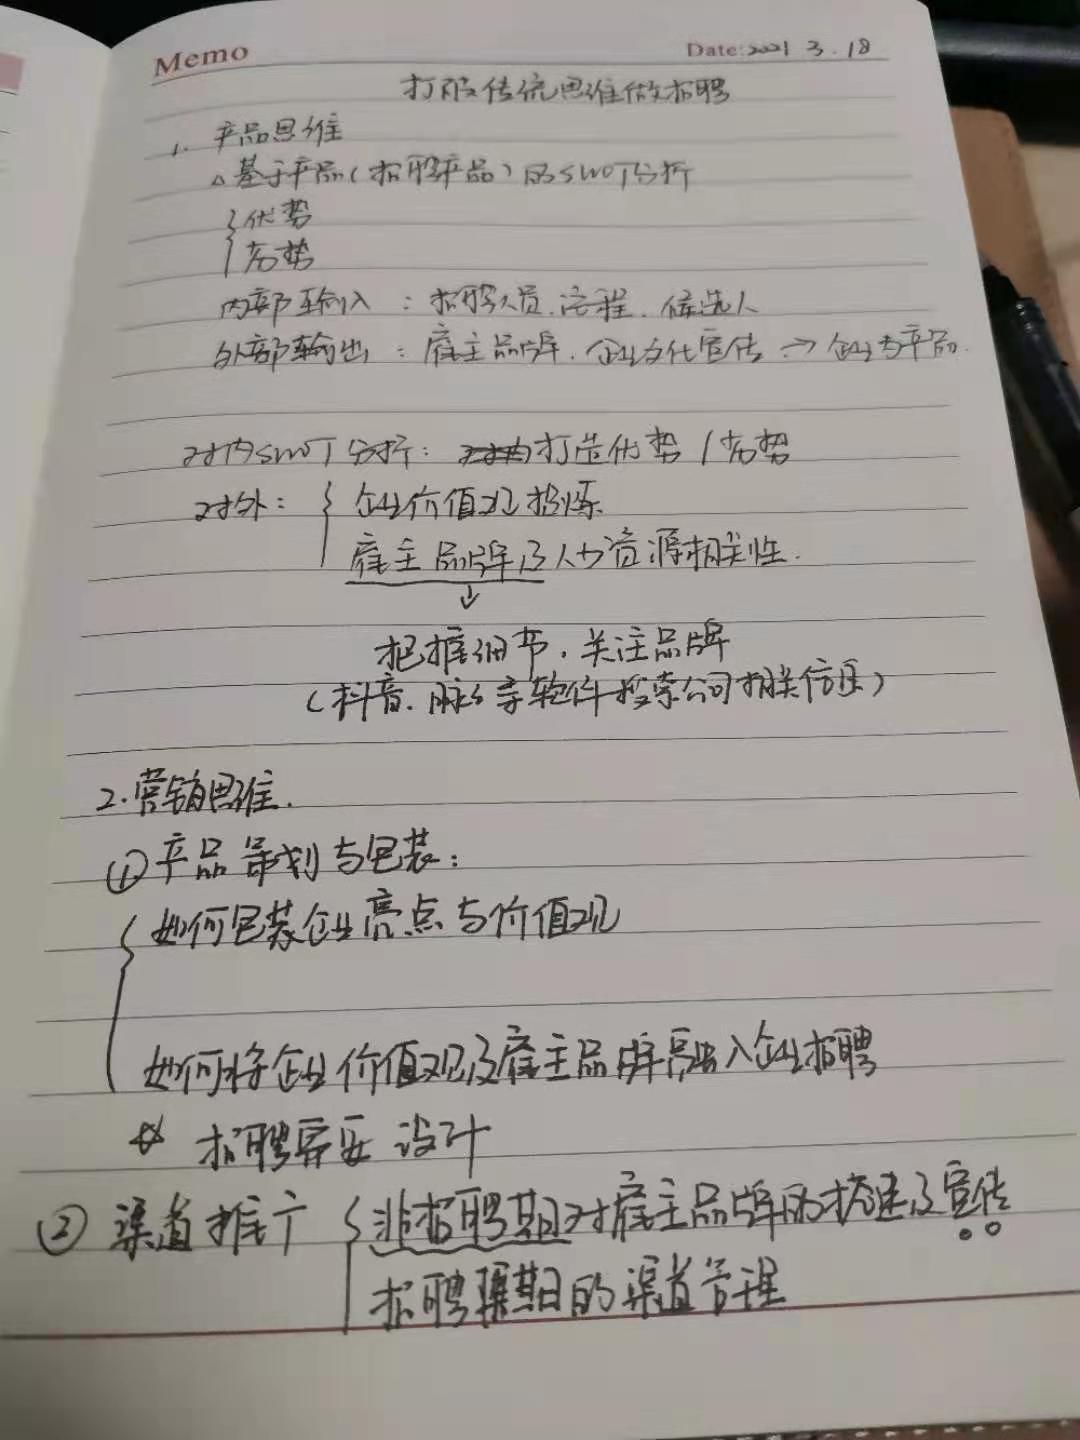 Memo
Date: 2021 3.18
打破传统思维做招聘
1. 产品思维
△基于产品(招聘产品)的SWOT分析
优势
劣势
内部输入：招聘人员、流程、候选人
外部输出：雇主品牌、企业文化宣传→企业为产品.
对内SWOT分析：打造优势/劣势
对外：企业价值观提炼
雇主品牌及人力资源相关性.
↓
把握细节，关注品牌
(抖音、脉脉等软件搜索公司相关信息)
2.营销思维.
①产品策划与包装：
如何包装企业亮点与价值观
如何将企业价值观及雇主品牌融入企业招聘
☆ 招聘需要设计
②渠道推广 非招聘期对雇主品牌的搭建及宣传
招聘期的渠道管理